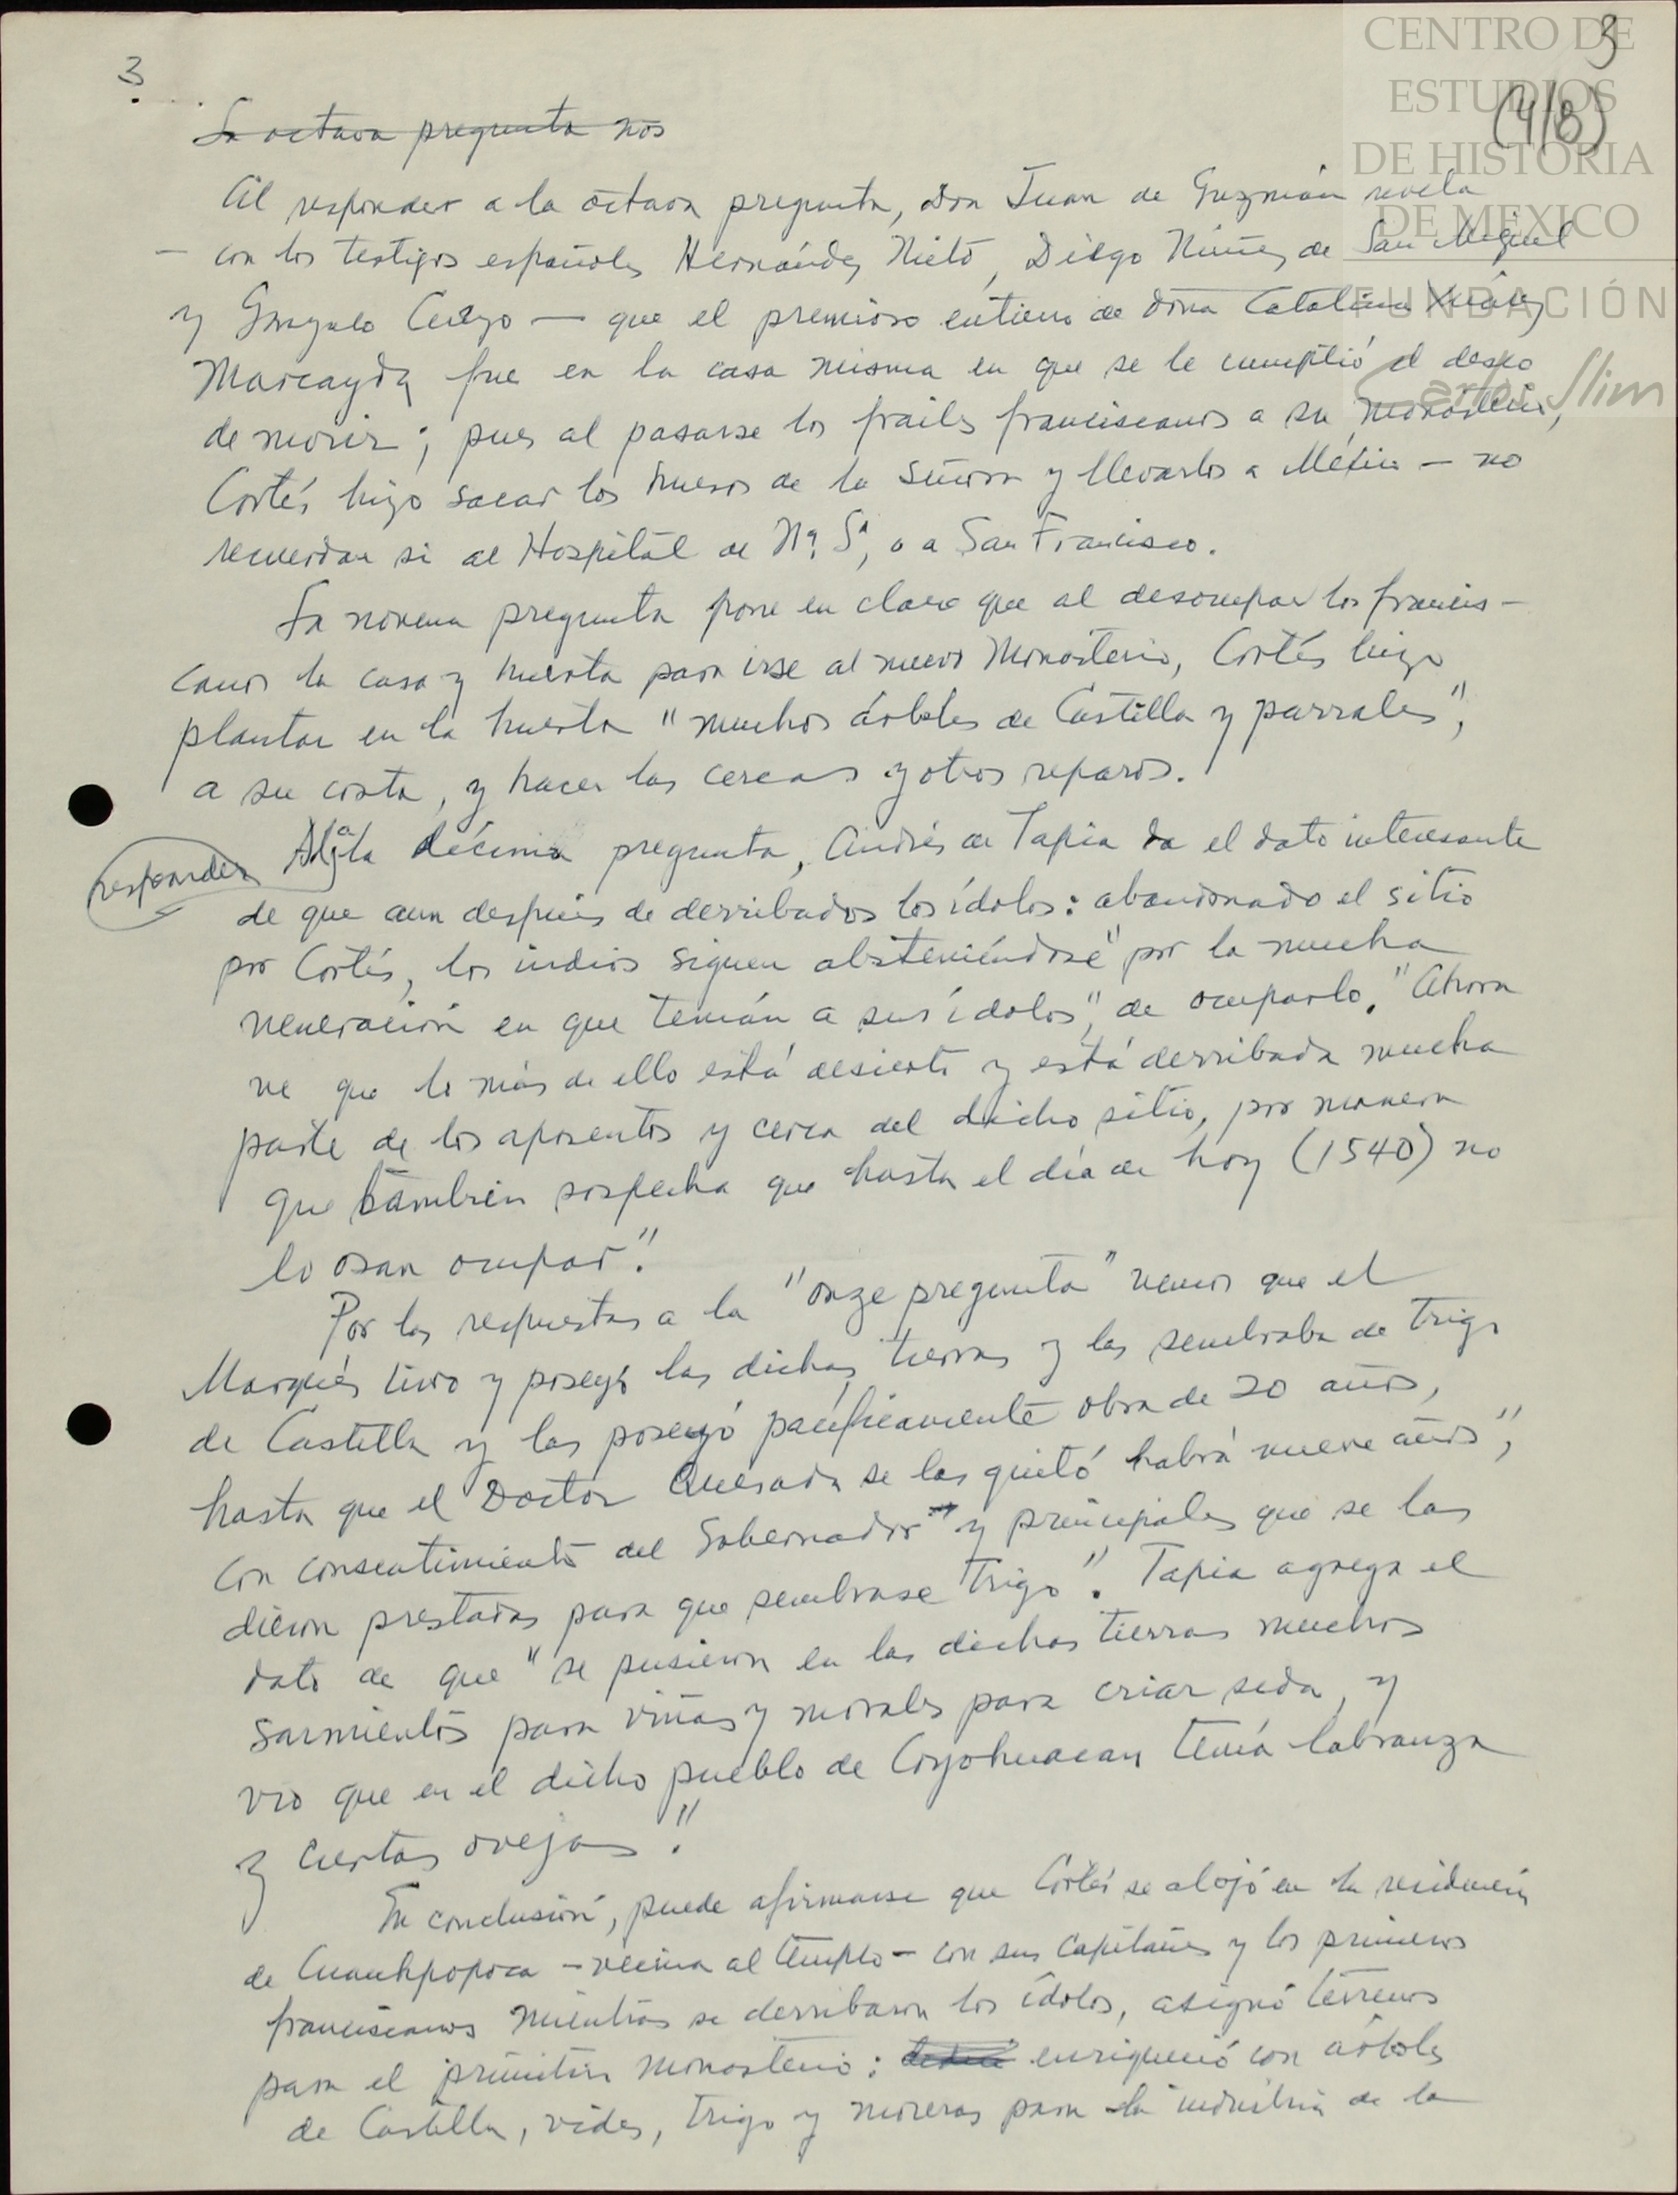 3
3
(4/8)
CENTRO DE
ESTUDIOS
DE HISTORIA
DE MEXICO
FUNDACIÓN
Carlos Slim
La octava pregunta nos
Al responder a la octava pregunta, Don Juan de Guzmán revela
— con los testigos españoles Hernández Nieto, Diego Núñez de San Miguel
y Gonzalo Cerezo — que el premioso entierro de doña Catalina Xuárez
Marcayda fue en la casa misma en que se le cumplió el deseo
de morir; pues al pasarse los frailes franciscanos a su monasterio,
Cortés hizo sacar los huesos de la señora y llevarlos a México — no
recuerdan si al Hospital de Nª Sª, o a San Francisco.
La novena pregunta pone en claro que al desocupar los francis-
canos la casa y huerta para irse al nuevo Monasterio, Cortés hizo
plantar en la huerta "muchos árboles de Castilla y parrales",
a su costa, y hacer las cercas y otros reparos.
responder Al a la décima pregunta, Andrés de Tapia da el dato interesante
de que aun después de derribados los ídolos: abandonado el sitio
por Cortés, los indios siguen absteniéndose "por la mucha
veneración en que tenían a sus ídolos", de ocuparlo. "Ahora
ve que lo más de ello está desierto y está derribada mucha
parte de los aposentos y cerca del dicho sitio, por manera
que también sospecha que hasta el día de hoy (1540) no
lo osan ocupar".
Por las respuestas a la "onze pregunta" vemos que el
Marqués tuvo y poseyó las dichas tierras y las sembraba de trigo
de Castilla y las poseyó pacíficamente obra de 20 años,
hasta que el Doctor Quesada se las quitó habrá nueve años",
con consentimiento del Gobernador y principales que se las
dieron prestadas para que sembrase trigo". Tapia agrega el
dato de que "se pusieron en las dichas tierras muchos
sarmientos para viñas y morales para criar seda, y
vio que en el dicho pueblo de Coyohuacan tenía labranza
y ciertas ovejas".
En conclusión, puede afirmarse que Cortés se alojó en la residencia
de Cuauhpopoca — vecina al templo — con sus capitanes y los primeros
franciscanos mientras se derribaron los ídolos, asignó terrenos
para el primitivo monasterio: enriqueció con árboles
de Castilla, vides, trigo y moreras para la industria de la